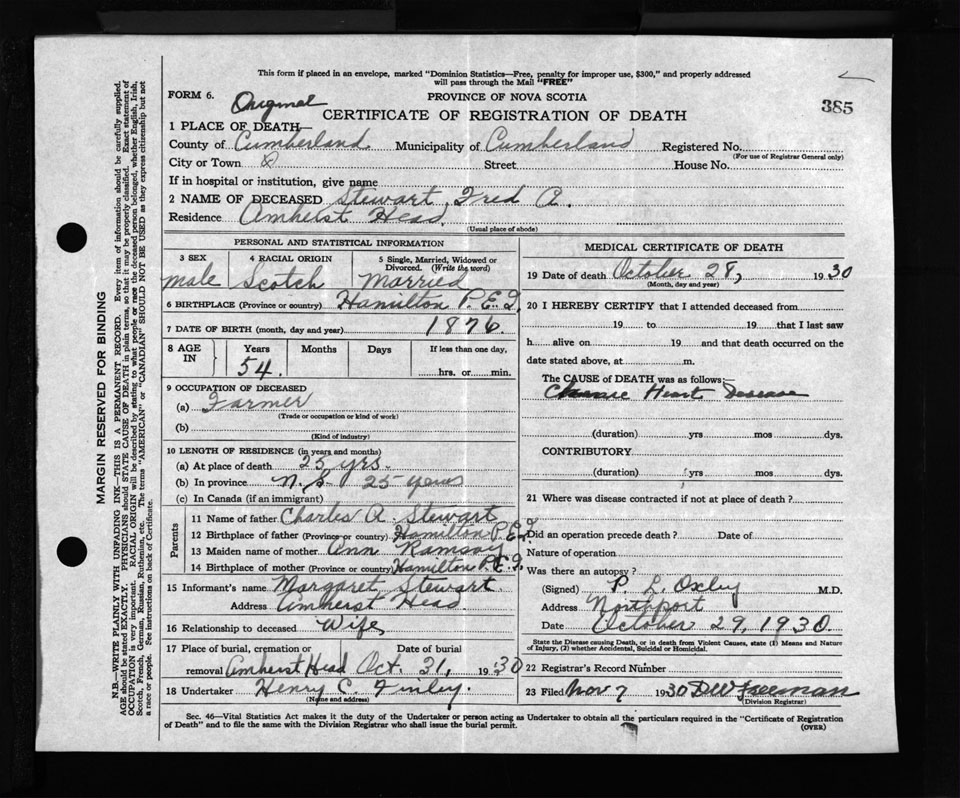 This form if placed in an envelope, marked "Dominion Statistics—Free, penalty for improper use, $300," and properly addressed
will pass through the Mail "FREE"
FORM 6. Original
PROVINCE OF NOVA SCOTIA
385
CERTIFICATE OF REGISTRATION OF DEATH
1 PLACE OF DEATH—
County of Cumberland Municipality of Cumberland Registered No.
(For use of Registrar General only)
City or Town Street House No.
If in hospital or institution, give name
2 NAME OF DECEASED Stewart, Fred A.
Residence Amherst Head
(Usual place of abode)
PERSONAL AND STATISTICAL INFORMATION
3 SEX 4 RACIAL ORIGIN 5 Single, Married, Widowed or
Divorced. (Write the word)
male Scotch Married
6 BIRTHPLACE (Province or country) Hamilton P.E.I.
7 DATE OF BIRTH (month, day and year) 1876.
8 AGE IN Years Months Days If less than one day,
54. hrs. or min.
9 OCCUPATION OF DECEASED
(a) Farmer
(Trade or occupation or kind of work)
(b)
(Kind of industry)
10 LENGTH OF RESIDENCE (in years and months)
(a) At place of death 25 yrs.
(b) In province N.S. 25 years
(c) In Canada (if an immigrant)
Parents
11 Name of father Charles A. Stewart
12 Birthplace of father (Province or country) Hamilton P.E.I.
13 Maiden name of mother Ann Ramsay
14 Birthplace of mother (Province or country) Hamilton P.E.I.
15 Informant's name Margaret Stewart.
Address Amherst Head.
16 Relationship to deceased Wife
17 Place of burial, cremation or Date of burial
removal Amherst Head Oct. 31, 1930
18 Undertaker Henry C. Finley.
(Name and address)
MEDICAL CERTIFICATE OF DEATH
19 Date of death October 28, 1930
(Month, day and year)
20 I HEREBY CERTIFY that I attended deceased from
19 to 19 that I last saw
h alive on 19 and that death occurred on the
date stated above, at m.
The CAUSE of DEATH was as follows:
Chronic Heart Disease
(duration) yrs mos dys.
CONTRIBUTORY
(duration) yrs mos dys.
21 Where was disease contracted if not at place of death?
Did an operation precede death? Date of
Nature of operation
Was there an autopsy?
(Signed) P. L. Oxley M.D.
Address Northport
Date October 29, 1930.
State the Disease causing Death, or in death from Violent Causes, state (1) Means and Nature
of Injury, (2) whether Accidental, Suicidal or Homicidal.
22 Registrar's Record Number
23 Filed Nov 7 1930 DW Freeman
(Division Registrar)
Sec. 46—Vital Statistics Act makes it the duty of the Undertaker or person acting as Undertaker to obtain all the particulars required in the "Certificate of Registration
of Death" and to file the same with the Division Registrar who shall issue the burial permit.
(OVER)
MARGIN RESERVED FOR BINDING
N.B.—WRITE PLAINLY WITH UNFADING INK—THIS IS A PERMANENT RECORD. Every item of information should be carefully supplied.
AGE should be stated EXACTLY. PHYSICIANS should STATE CAUSE OF DEATH in plain terms, so that it may be properly classified. Exact statement of
OCCUPATION is very important. RACIAL ORIGIN will be described by stating to what people or race the deceased person belonged, whether English, Irish,
Scotch, French, German, Russian, Ruthenian, etc. The terms "AMERICAN" or "CANADIAN" SHOULD NOT BE USED as they express citizenship but not
a race or people. See instructions on back of Certificate.